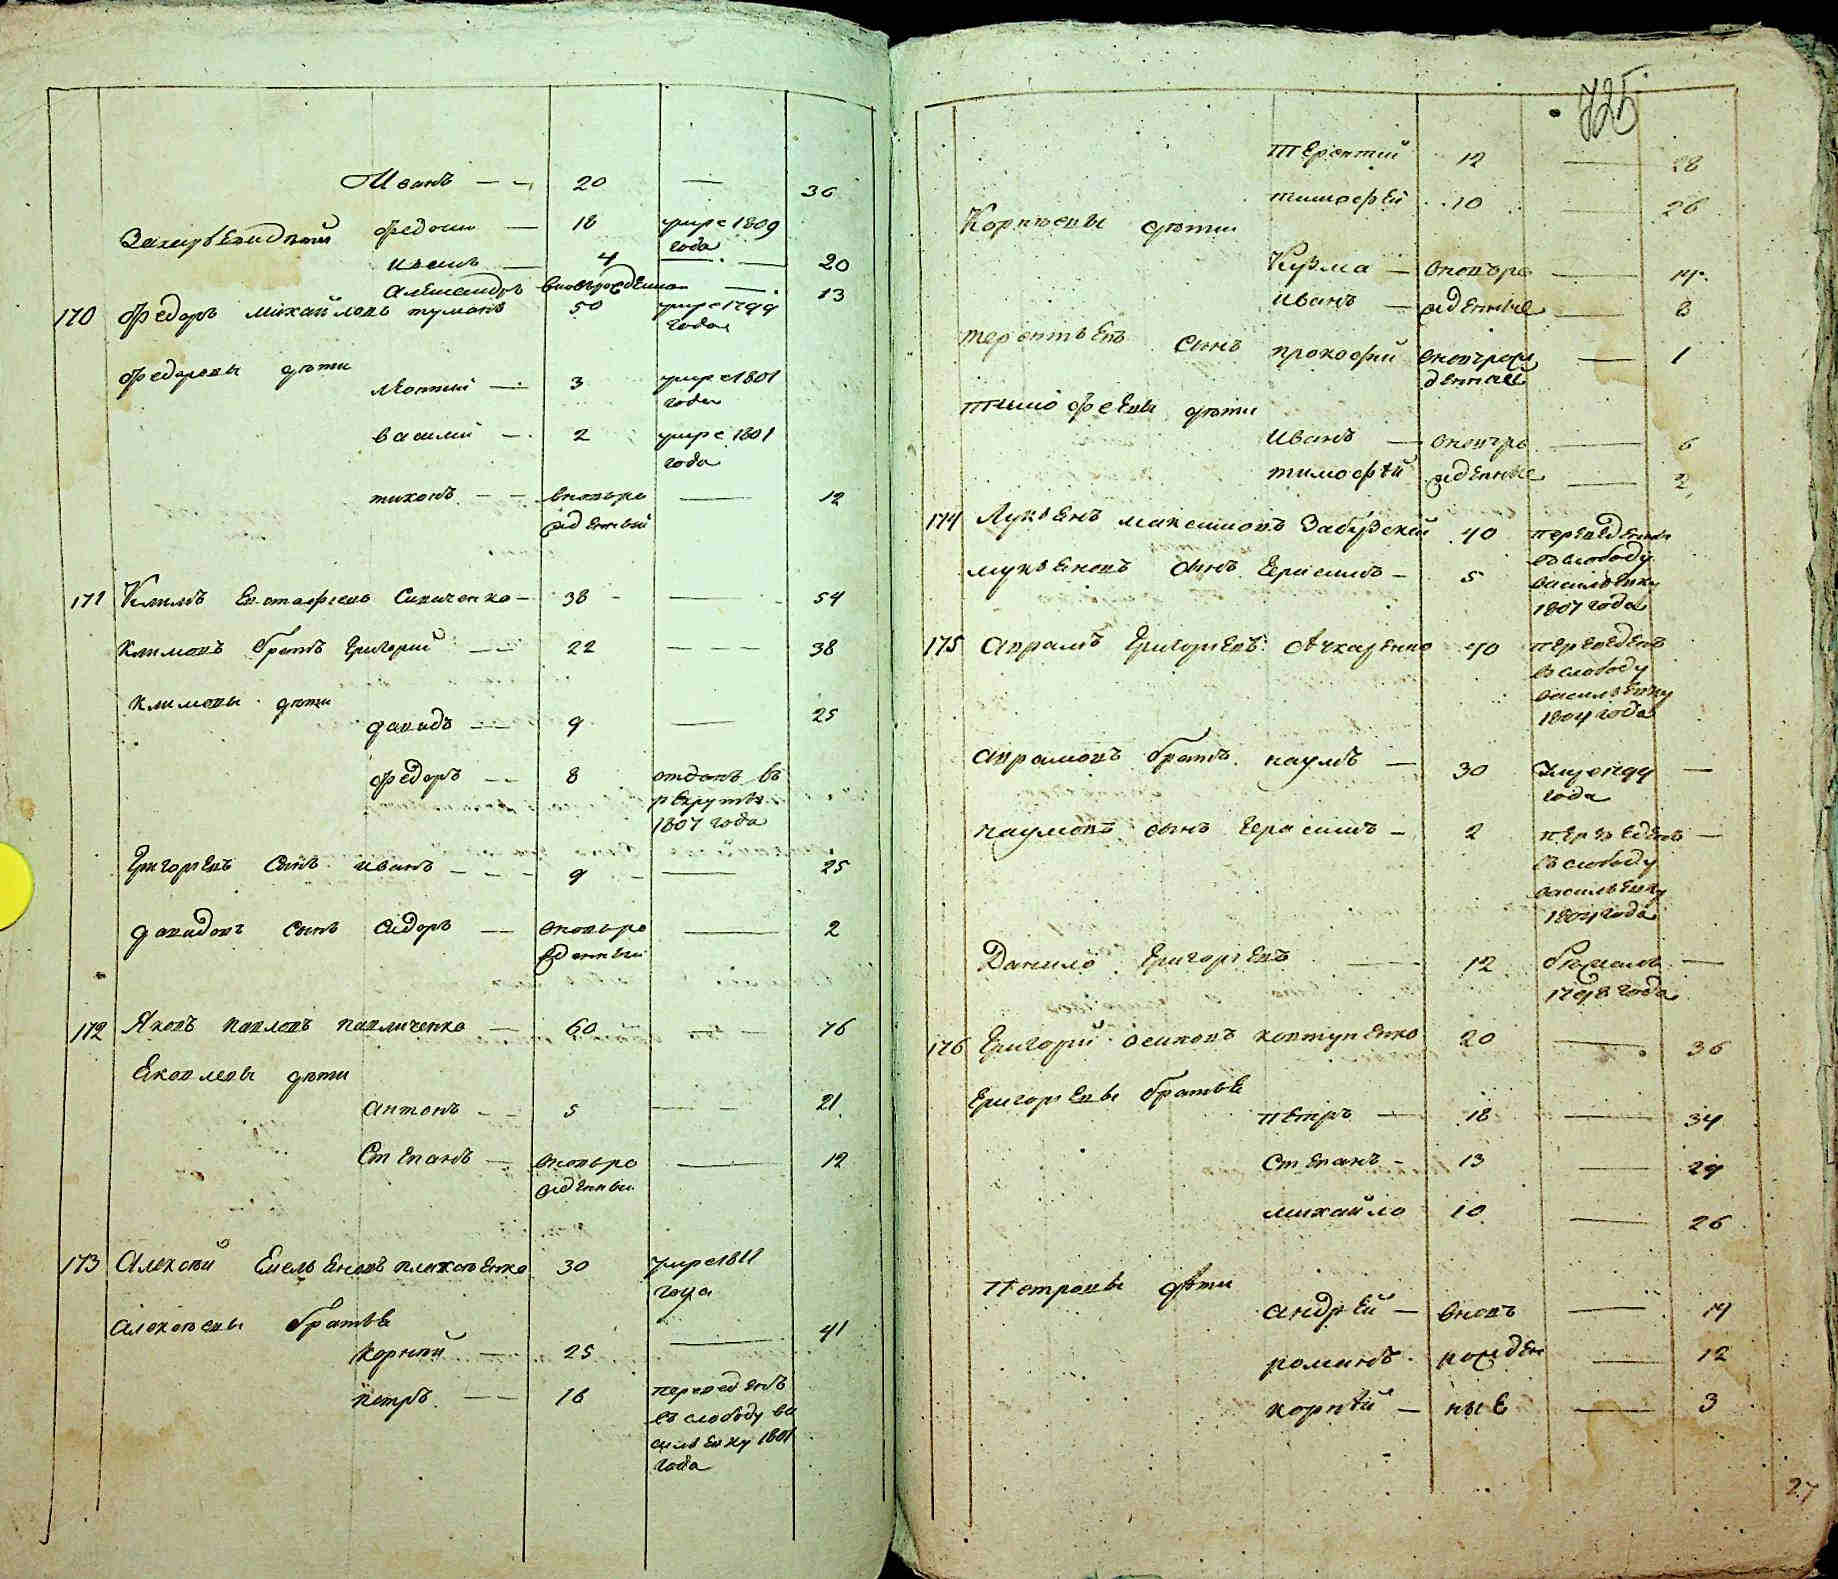 Иванъ — 20 — 36
Федоси — 18 умре 1809
года
4 — 20
Александръ вновьрожденной — 13
170 Федоръ михайловъ тумакъ 50 умре 1799
года
Федоровы дѣти
Леонтий — 3 умре 1801
года
василий — 2 умре 1801
года
тихонъ — вновьро — 12
жденный
171 Климъ Евстафиевъ — 38 — 54
Климовъ братъ Григорий — 22 — 38
климовы дѣти
давидъ — 9 — 25
федоръ — 8 отданъ въ
рекруты
1807 года
Григорьевъ сынъ иванъ — 9 — 25
давидовъ сынъ сидоръ — вновьро — 2
жденный
172 Яковъ павловъ павличенко — 60 — 76
Яковлевы дѣти
антонъ — 5 — 21
Степанъ — вновьро — 12
жденный
173 Алексѣй Емельяновъ плахотенко 30 умре 1811
года
алексѣевы братья
корнѣй — 25 — 41
петръ — 16 переведенъ
въ слободу ва
сильевку 1801
года
725
терентий 12 — 28
тимофей 10 — 26
Корнѣевы дѣти
Кузма — вновьро — 14
иванъ — жденные — 8
терентьевъ сынъ прокофий вновьрож — 1
денный
тимофеевы дѣти
иванъ — вновьро — 6
тимофѣй жденные — 2
174 Лукьянъ максимовъ Забузский 40 переведены
въ слободу
лукьяновъ сынъ Герасимъ — 5 васильевку
1807 года
175 аврамъ Григорьевъ Овчаренко 40 переведенъ
въ слободу
васильевку
1804 года
аврамовъ братъ наумъ — 30 —
года
наумовъ сынъ Герасимъ — 2 переведенъ —
въ слободу
васильевку
1804 года
Данило Григорьевъ — 12 бежалъ —
1798 года
176 Григорий осиповъ ковтуненко 20 — 36
Григорьевы братья
петръ — 18 — 34
степанъ — 13 — 29
михайло 10 — 26
Петровы дѣти
андрей — вновь — 14
романъ рожден — 12
корнѣй — ные — 3
27